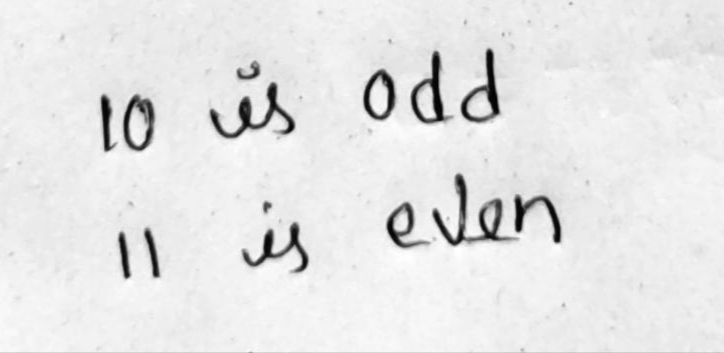 10 is odd
11 is even